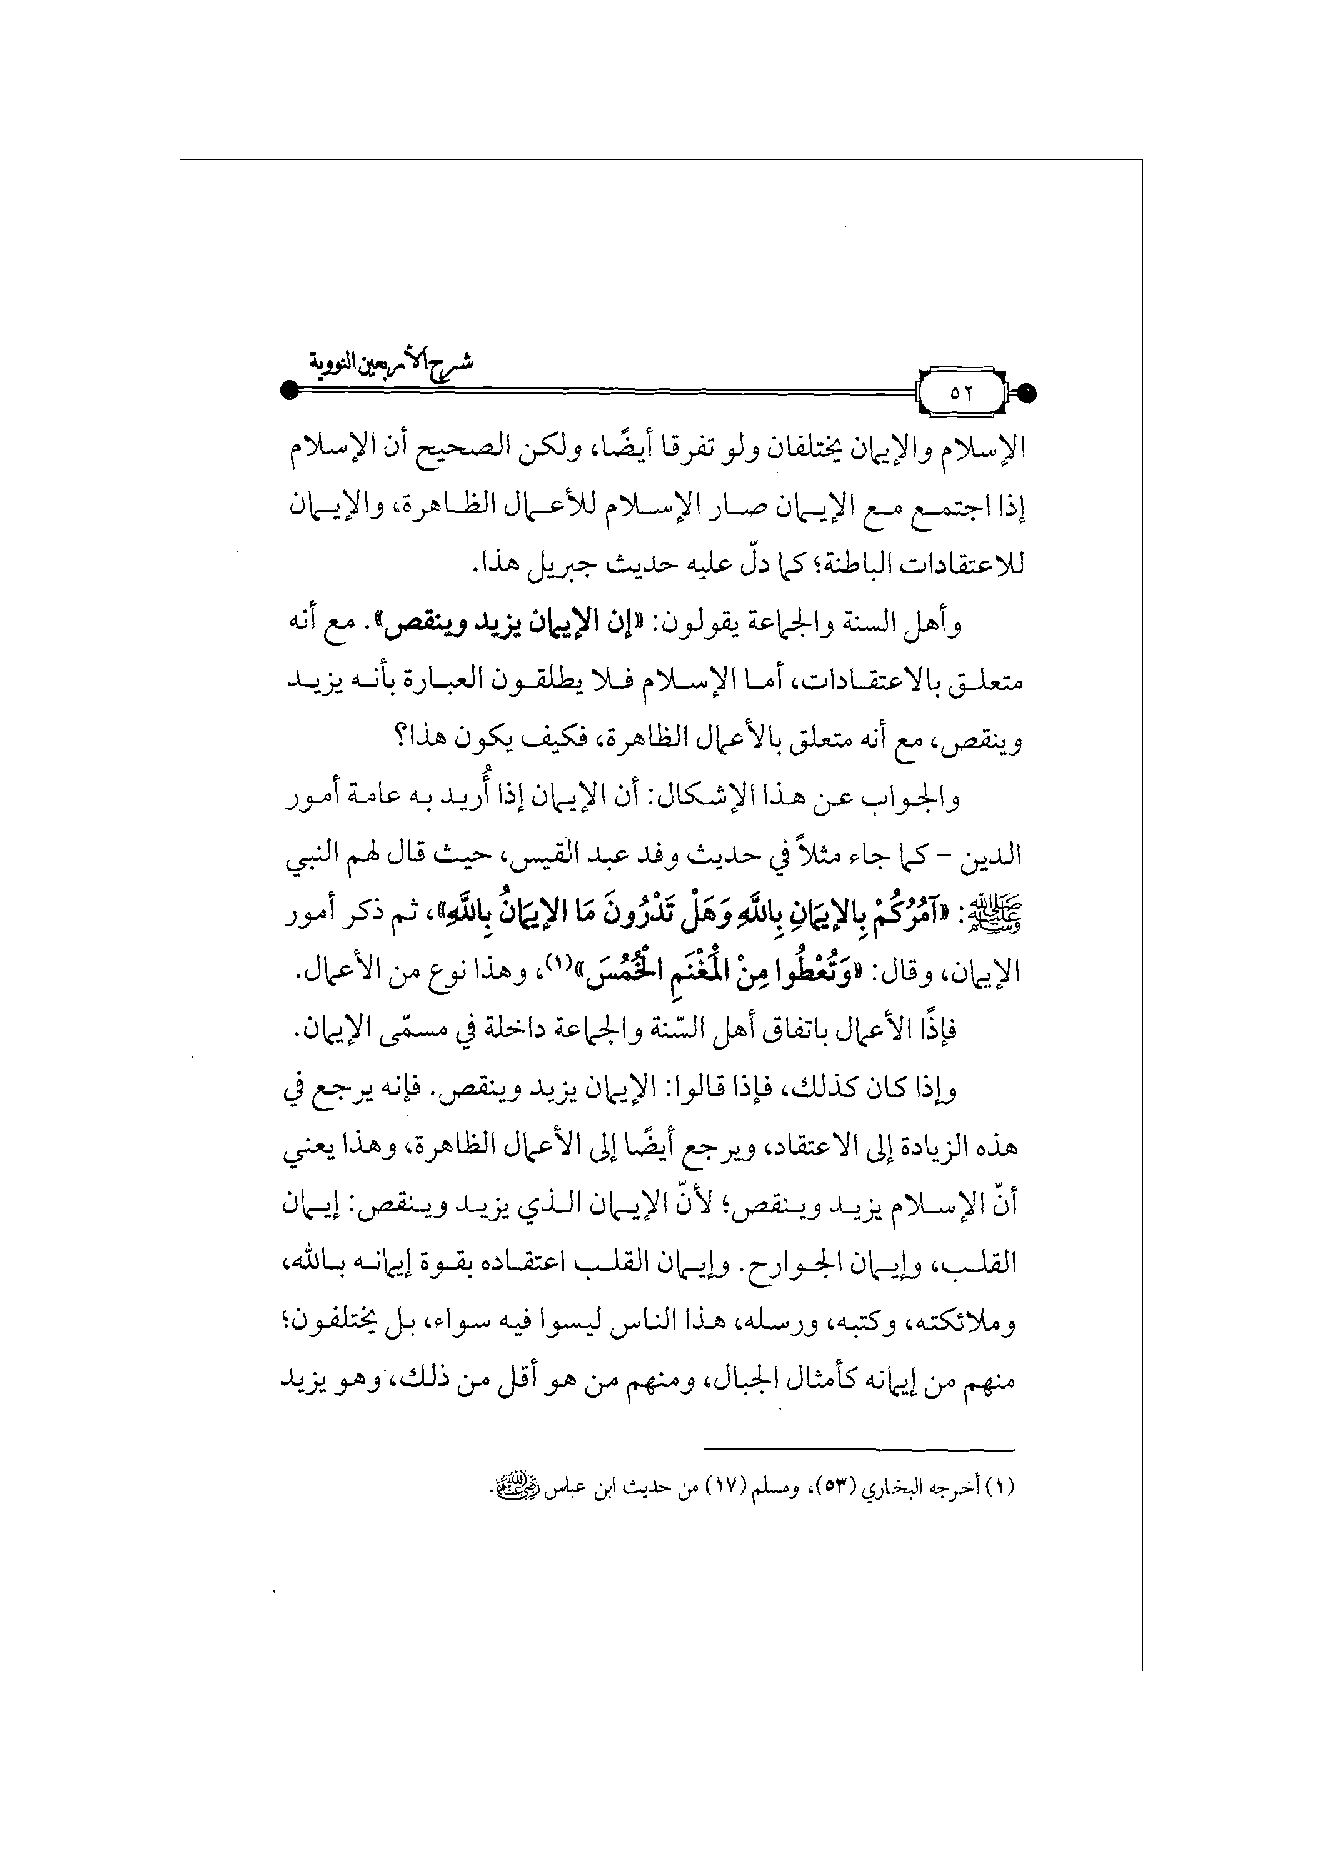 شرح الأربعين النووية
٥٢
الإسلام والإيمان يختلفان ولو تفرقا أيضًا، ولكن الصحيح أن الإسلام
إذا اجتمع مع الإيمان صار الإسلام للأعمال الظاهرة، والإيمان
للاعتقادات الباطنة؛ كما دلّ عليه حديث جبريل هذا.
وأهل السنة والجماعة يقولون: «إن الإيمان يزيد وينقص». مع أنه
متعلق بالاعتقادات، أما الإسلام فلا يطلقون العبارة بأنه يزيد
وينقص، مع أنه متعلق بالأعمال الظاهرة، فكيف يكون هذا؟
والجواب عن هذا الإشكال: أن الإيمان إذا أُريد به عامة أمور
الدين – كما جاء مثلاً في حديث وفد عبد القيس، حيث قال لهم النبي
ﷺ: «آمُرُكُمْ بِالإيمَانِ بِاللَّهِ وَهَلْ تَدْرُونَ مَا الإيمَانُ بِاللَّهِ»، ثم ذكر أمور
الإيمان، وقال: «وَتُعْطُوا مِنْ الْمَغْنَمِ الْخُمُسَ»(١)، وهذا نوع من الأعمال.
فإذًا الأعمال باتفاق أهل السّنة والجماعة داخلة في مسمّى الإيمان.
وإذا كان كذلك، فإذا قالوا: الإيمان يزيد وينقص. فإنه يرجع في
هذه الزيادة إلى الاعتقاد، ويرجع أيضًا إلى الأعمال الظاهرة، وهذا يعني
أنّ الإسلام يزيد وينقص؛ لأنّ الإيمان الذي يزيد وينقص: إيمان
القلب، وإيمان الجوارح. وإيمان القلب اعتقاده بقوة إيمانه بالله،
وملائكته، وكتبه، ورسله، هذا الناس ليسوا فيه سواء، بل يختلفون؛
منهم من إيمانه كأمثال الجبال، ومنهم من هو أقل من ذلك، وهو يزيد
(١) أخرجه البخاري (٥٣)، ومسلم (١٧) من حديث ابن عباس رضي الله عنهما.